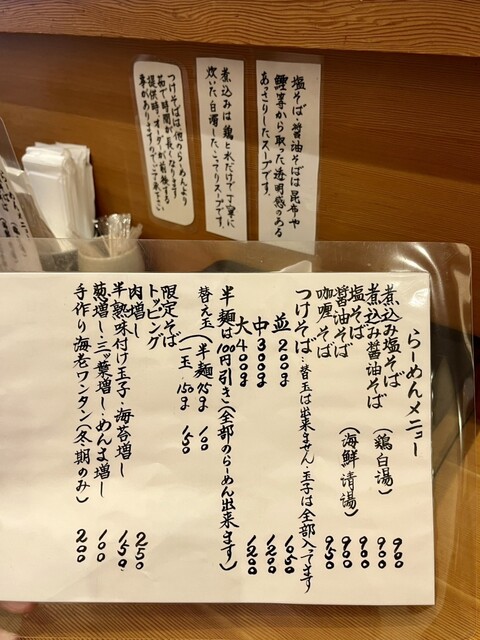 塩そば・醤油そばは昆布や
鰹等から取った透明感のある
あっさりしたスープです。
煮込みは鶏と水だけで丁寧に
炊いた白濁したこってりスープです。
つけそばは他のらーめんより
茹で時間が長くなります
提供時、オーダーが前後する
事がありますのでご了承下さい
らーめんメニュー
煮込み塩そば (鶏白湯) 900
煮込み醤油そば 900
塩そば (海鮮清湯) 900
醤油そば 900
咖喱そば 950
つけそば…替玉は出来ません 玉子は全部入ってます
並 200g 1050
中 300g 1200
大 400g 1200
半麺は100円引き(全部のらーめん出来ます)
替え玉 (半麺 75g 100
(一玉 150g 150
限定そば
トッピング
肉増し 250
半熟味付け玉子・海苔増し 150
葱増し・三ッ葉増し・めんま増し 100
手作り海老ワンタン(冬期のみ) 200